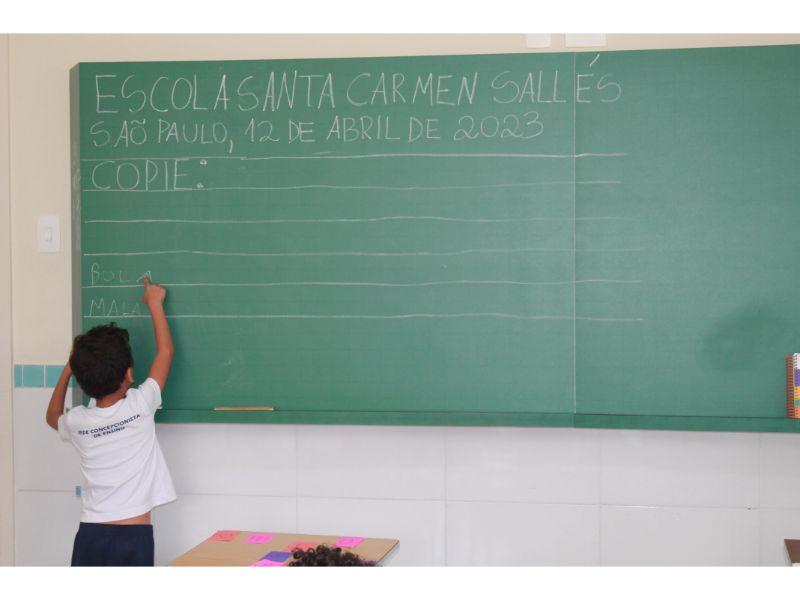 ESCOLA SANTA CARMEN SALLÉS
SÃO PAULO, 12 DE ABRIL DE 2023
COPIE:
BOLA
MALA
REDE CONCEPCIONISTA
DE ENSINO